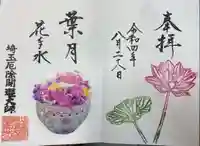 奉拝
令和四年
八月二十八日
葉月
花手水
埼玉厄除開運大師